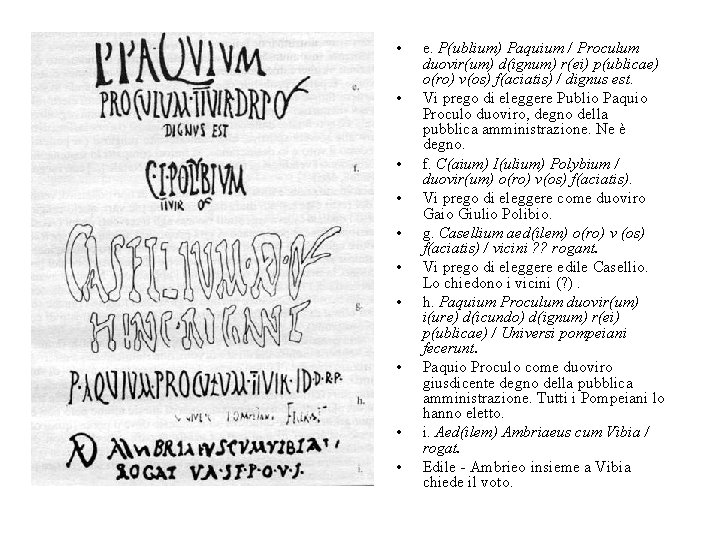 P·PAQVIVM
PROCVLVM·IIVIR·D·R·P·OF
DIGNVS EST
e.
C·I·POLYBIVM
IIVIR OF
f.
CASELLIVM·
g.
ROGANT
P·AQVIVM PROCVLVM·IIVIR·ID·D·R·P.
h.
AMBRIAEVS CVM VIBIA
ROGAT
i.
• e. P(ublium) Paquium / Proculum
duovir(um) d(ignum) r(ei) p(ublicae)
o(ro) v(os) f(aciatis) / dignus est.
• Vi prego di eleggere Publio Paquio
Proculo duoviro, degno della
pubblica amministrazione. Ne è
degno.
• f. C(aium) I(ulium) Polybium /
duovir(um) o(ro) v(os) f(aciatis).
• Vi prego di eleggere come duoviro
Gaio Giulio Polibio.
• g. Casellium aed(ilem) o(ro) v (os)
f(aciatis) / vicini ?? rogant.
• Vi prego di eleggere edile Casellio.
Lo chiedono i vicini (?) .
• h. Paquium Proculum duovir(um)
i(ure) d(icundo) d(ignum) r(ei)
p(ublicae) / Universi pompeiani
fecerunt.
• Paquio Proculo come duoviro
giusdicente degno della pubblica
amministrazione. Tutti i Pompeiani lo
hanno eletto.
• i. Aed(ilem) Ambriaeus cum Vibia /
rogat.
• Edile - Ambrieo insieme a Vibia
chiede il voto.